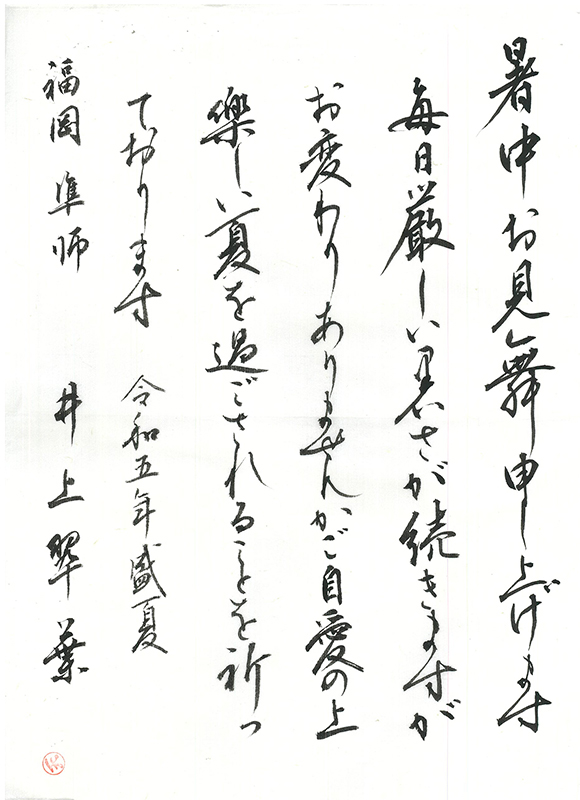 暑中お見舞申し上げます
毎日厳しい暑さが続きますが
お変わりありませんかご自愛の上
樂しい夏を過ごされることを祈っ
ております 令和五年盛夏
福岡 準師 井上翠葉